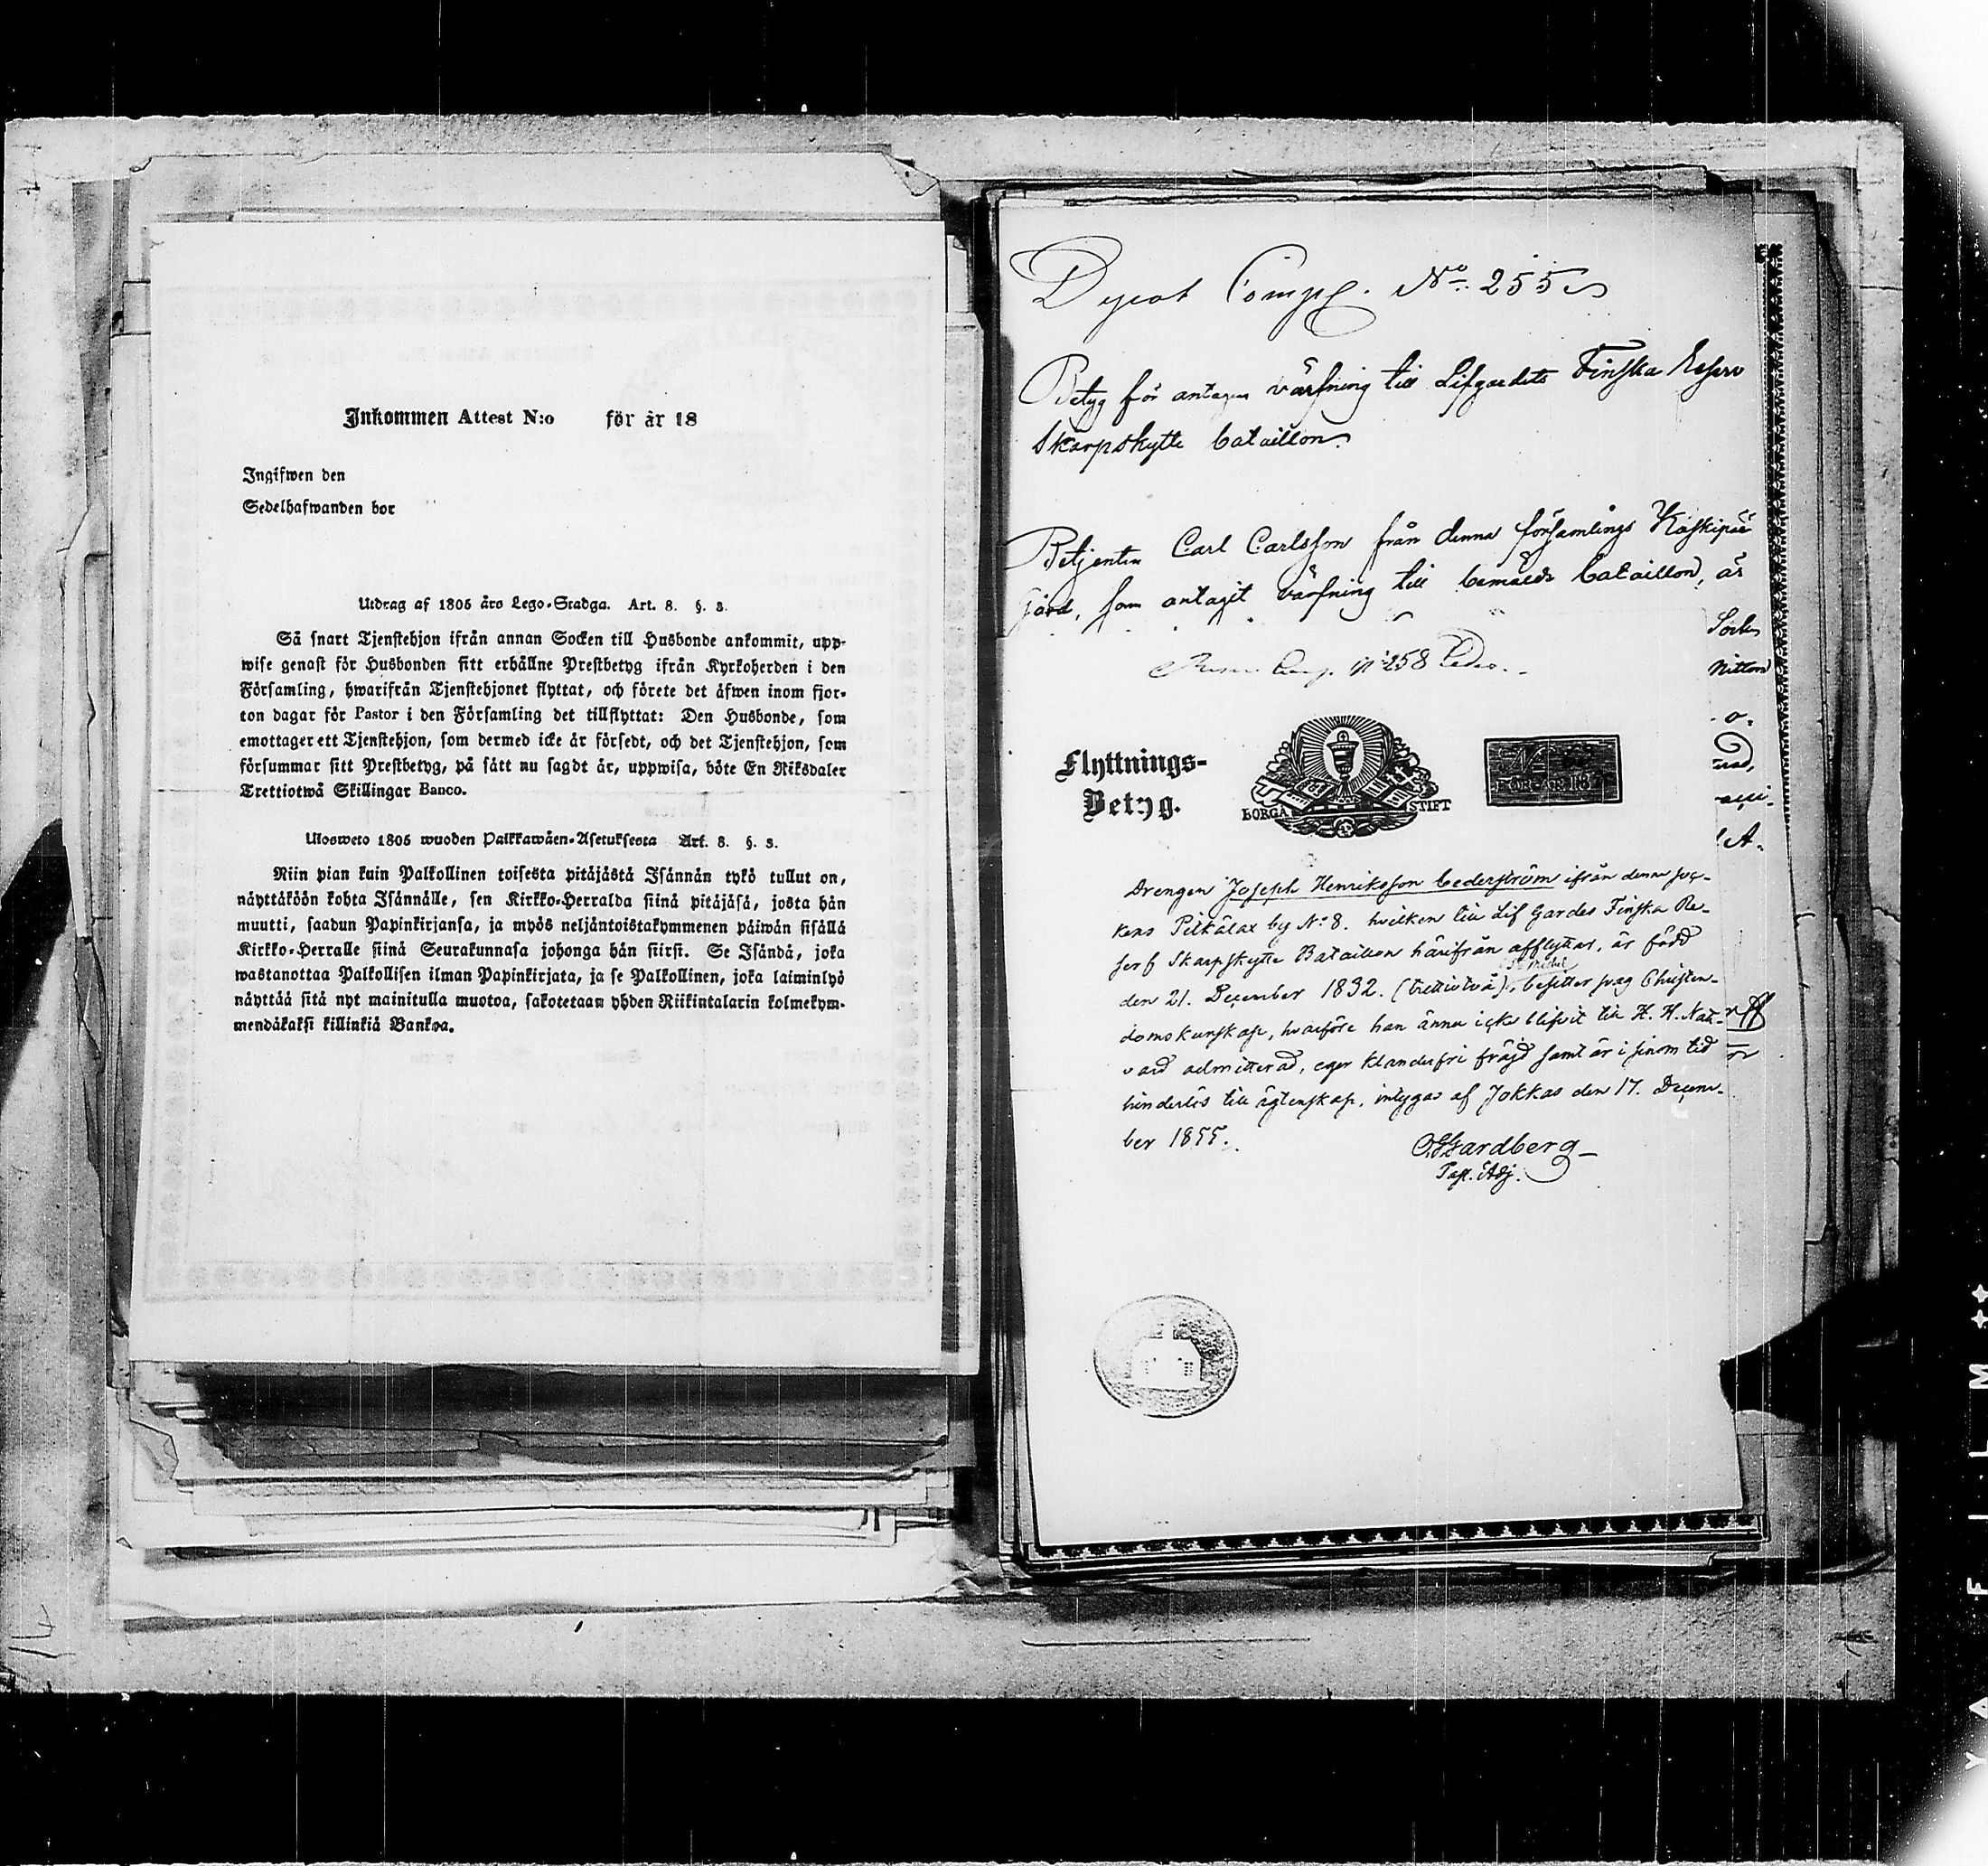 Inkommen Attest N:o för år 18
Ingifwen den
Sedelhafwanden bor
Utdrag af 1805 års Lego-Stadga. Art. 8. §. 3.
Så snart Tjenstehjon ifrån annan Socken till Husbonde ankommit, upp-
wise genast för Husbonden sitt erhållne Prestbetyg ifrån Kyrkoherden i den
Församling, hwarifrån Tjenstehjonet flyttat, och förete det äfwen inom fjor-
ton dagar för Pastor i den Församling det tillflyttat: Den Husbonde, som
emottager ett Tjenstehjon, som dermed icke är försedt, och det Tjenstehjon, som
försummar sitt Prestbetyg, på sätt nu sagdt är, uppwisa, böte En Riksdaler
Trettiotwå Skillingar Banco.
Ulosweto 1805 wuoden Palkkawäen-Asetuksesta Art. 8. §. 3.
Niin pian kuin Palkollinen toisesta pitäjästä Isännän tykö tullut on,
näyttäköön kohta Isännälle, sen Kirkko-Herralda siinä pitäjäsä, josta hän
muutti, saadun Papinkirjansa, ja myös neljäntoistakymmenen päiwän sisällä
Kirkko-Herralle siinä Seurakunnasa johonga hän siirsi. Se Isändä, joka
wastanottaa Palkollisen ilman Papinkirjata, ja se Palkollinen, joka laiminlyö
näyttää sitä nyt mainitulla muotoa, sakotetaan yhden Riikintalarin kolmekym-
mendäkaksi killinkiä Bankoa.
Depot Comp. No. 255
Betyg för antagen värfning till Lifgardets Finska Reserv
Skarpskytte bataillon.
Betjenten Carl Carlsson från denna församlings Koskipää
gård, som antagit värfning till bemälde bataillon, är
No 258
Flyttnings-
Betyg.
BORGÅ STIFT
No
FÖR ÅR 18
Drengen Joseph Henriksson Cederström ifrån denna soc-
kens Pitkälax by No 8. hvilken till Lif Gardes Finska Re-
serf Skarpskytte Bataillon härifrån afflyttar, är född
St Michel
den 21. December 1832. (trettiotvå), besitter svag Christen-
domskunskap, hvarföre han ännu icke blifvit till H. H. Natt-
vard admitterad, eger klanderfri fräjd samt är i sinom tid
hinderlös till ägtenskap, intygas af Jokkas den 17. Decem-
ber 1855.
Gardberg
Past. Adj.